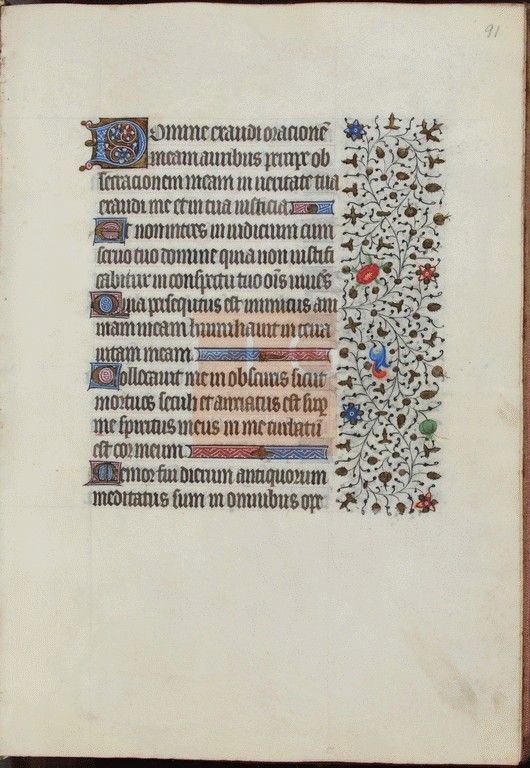 91
Domine exaudi oracionē
meam auribus percipe ob
secracionem meam in ueritate tua
exaudi me et in tua iusticia
Et non intres in iudicium cum
seruo tuo domine quia non iustifi
cabitur in conspectu tuo oīs uiuēs
Quia persequtus est inimicus ani
mam meam humiliauit in terra
uitam meam
Collocauit me in obscuris sicut
mortuos seculi et anxiatus est sup
me spiritus meus in me turbatū
est cor meum
Memor fui dierum antiquorum
meditatus sum in omnibus ope